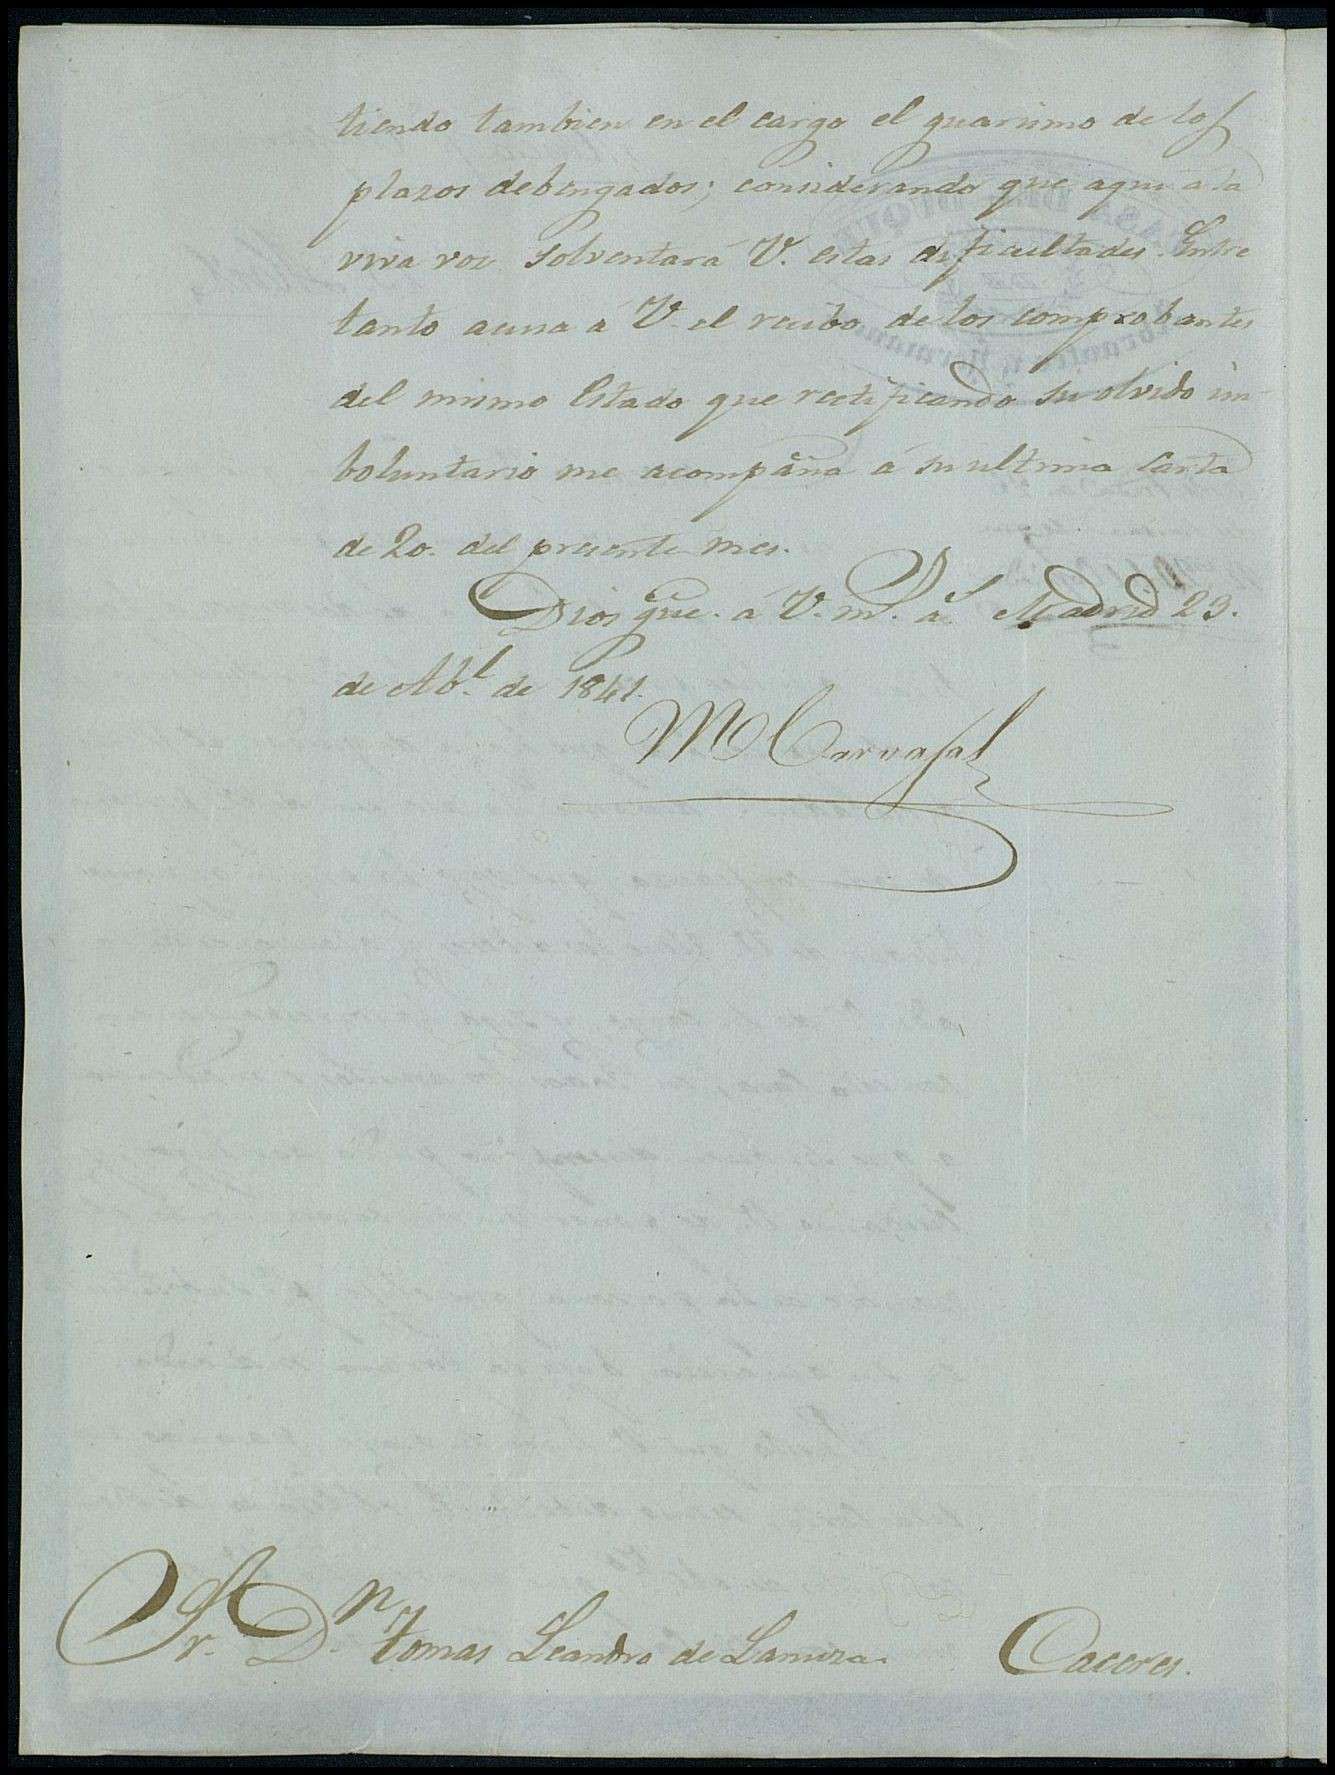 tiendo tambien en el cargo el guarismo de los
plazos debengados; considerando que aqui á la
viva voz solventará V. estas dificultades. Entre
tanto acusa á V. el recibo de los comprobantes
del mismo Estado que rectificando su olvido im-
boluntario me acompaña á su ultima Carta
de 20. del presente mes.
Dios gue. á V. m.s a.s Madrid 23.
de Ab.l de 1841.
M Carvajal
Sr. D.n Tomas Leandro de Lamiza. Caceres.